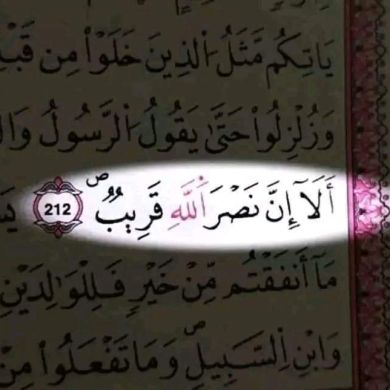 يَاتِكُم مَّثَلُ اُ۬لذِينَ خَلَوْاْ مِن قَبْلِ
وَزُلْزِلُواْ حَتَّىٰ يَقُولُ اُ۬لرَّسُولُ وَال
أَلَآ إِنَّ نَصْرَ اَ۬للَّهِ قَرِيبٞۖ 212
مَآ أَنفَقْتُم مِّنْ خَيْرٖ فَلِلْوَٰلِدَيْنِ
وَابْنِ اِ۬لسَّبِيلِۖ وَمَا تَفْعَلُواْ مِنْ